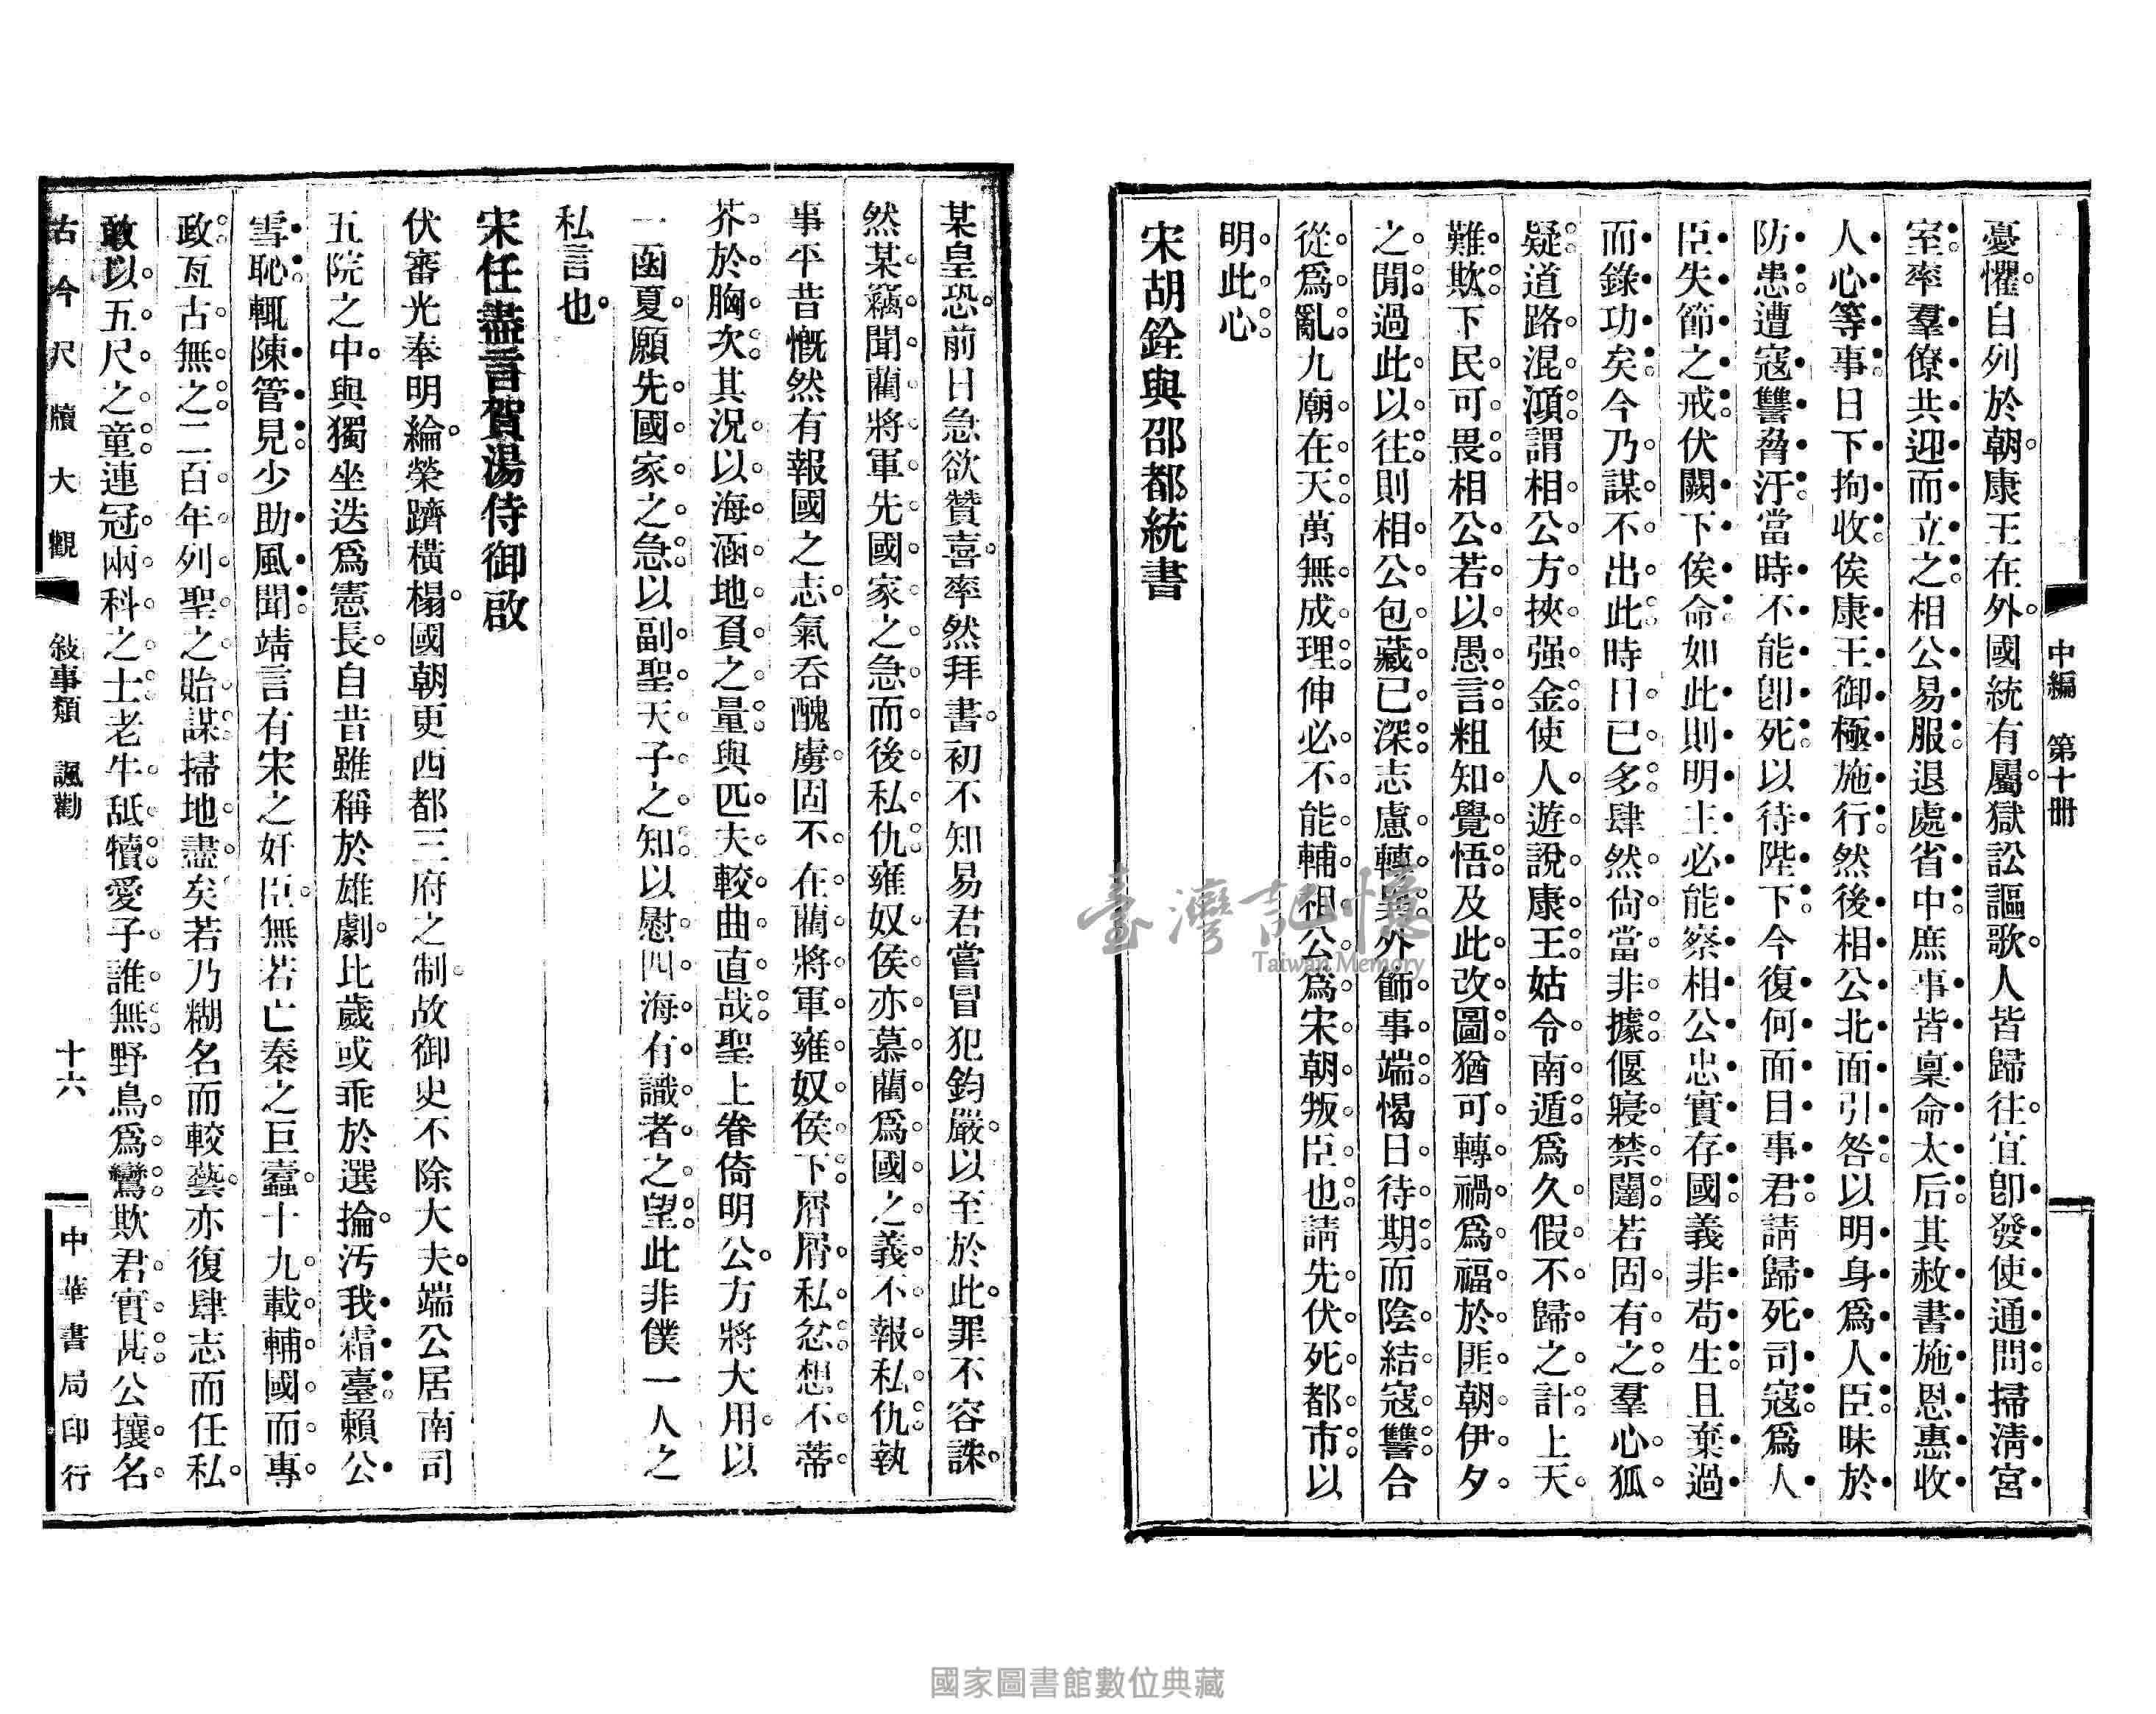 中編　第十册
憂懼自列於朝康王在外國統有屬獄訟謳歌人皆歸往宜卽發使通問掃淸宮
室率羣僚共迎而立之相公易服退處省中庶事皆稟命太后其赦書施恩惠收
人心等事日下拘收俟康王御極施行然後相公北面引咎以明身爲人臣昧於
防患遭寇讐脅汙當時不能卽死以待陛下今復何面目事君請歸死司寇爲人
臣失節之戒伏闕下俟命如此則明主必能察相公忠實存國義非苟生且棄過
而錄功矣今乃謀不出此時日已多肆然尙當非據偃寢禁闥若固有之羣心狐
疑道路混澒謂相公方挾强金使人遊說康王姑令南遁爲久假不歸之計上天
難欺下民可畏相公若以愚言粗知覺悟及此改圖猶可轉禍爲福於匪朝伊夕
之閒過此以往則相公包藏已深志慮轉異外飾事端愒日待期而陰結寇讐合
從爲亂九廟在天萬無成理伸必不能輔相公爲宋朝叛臣也請先伏死都市以
明此心
宋胡銓與邵都統書
某皇恐前日急欲贊喜率然拜書初不知易君嘗冒犯鈞嚴以至於此罪不容誅
然某竊聞藺將軍先國家之急而後私仇雍奴侯亦慕藺爲國之義不報私仇執
事平昔慨然有報國之志氣呑醜虜固不在藺將軍雍奴侯下屑屑私忿想不蒂
芥於胸次其況以海涵地負之量與匹夫較曲直哉聖上眷倚明公方將大用以
一函夏願先國家之急以副聖天子之知以慰四海有識者之望此非僕一人之
私言也
宋任盡言賀湯侍御啟
伏審光奉明綸榮躋橫榻國朝更西都三府之制故御史不除大夫端公居南司
五院之中與獨坐迭爲憲長自昔雖稱於雄劇比歲或乖於選掄汚我霜臺賴公
雪恥輒陳管見少助風聞靖言有宋之奸臣無若亡秦之巨蠹十九載輔國而專
政亙古無之二百年列聖之貽謀掃地盡矣若乃糊名而較藝亦復肆志而任私
敢以五尺之童連冠兩科之士老牛舐犢愛子誰無野鳥爲鸞欺君實甚公攘名
古今尺牘大觀
敍事類　諷勸
十六
中華書局印行
臺灣記憶
Taiwan Memory
國家圖書館數位典藏